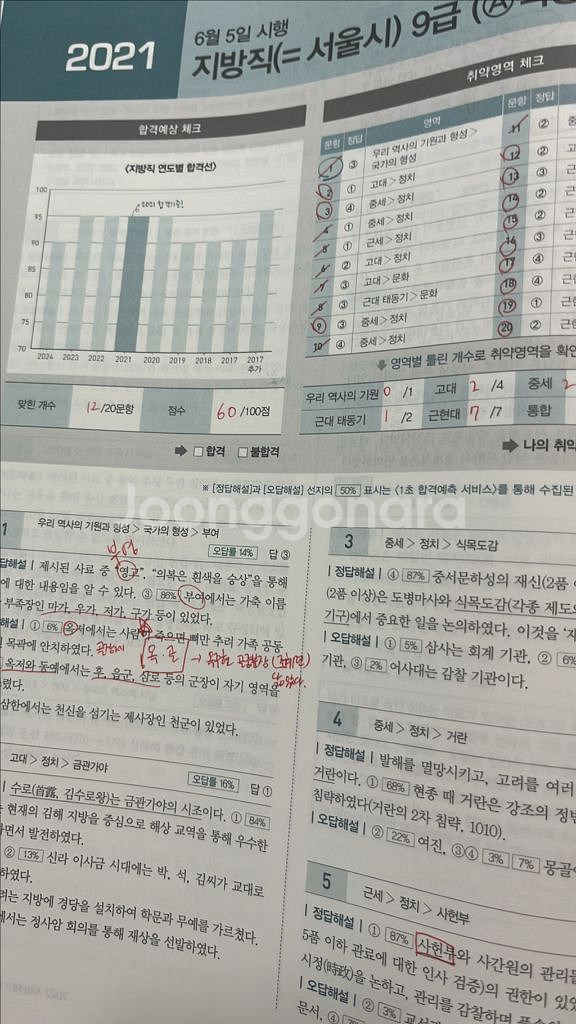 2021
6월 5일 시행
지방직(= 서울시) 9급 (A
합격예상 체크
<지방직 연도별 합격선>
2021 합격기준!
100
95
90
85
80
75
70
2024 2023 2022 2021 2020 2019 2018 2017 2017
추가
맞힌 개수 12 /20문항 점수 60 /100점
합격 불합격
취약영역 체크
문항 정답 영역 문항 정답
1 ③ 우리 역사의 기원과 형성 > 국가의 형성 11 ②
2 ① 고대 > 정치 12 ②
3 ④ 중세 > 정치 13 ③
4 ① 중세 > 정치 14 ②
5 ① 근세 > 정치 15 ②
6 ② 고대 > 정치 16 ③
7 ③ 고대 > 문화 17 ④
8 ③ 근대 태동기 > 문화 18 ④
9 ③ 중세 > 정치 19 ①
10 ④ 중세 > 정치 20 ②
영역별 틀린 개수로 취약영역을 확인
우리 역사의 기원 0 /1 고대 2 /4 중세 2
근대 태동기 1 /2 근현대 7 /7 통합
나의 취약
※ [정답해설]과 [오답해설] 선지의 50% 표시는 <1초 합격예측 서비스>를 통해 수집된
joonggonara
1 우리 역사의 기원과 형성 > 국가의 형성 > 부여
부여
오답률 14% 답 ③
답해설 | 제시된 사료 중 "영고", "의복은 흰색을 숭상"을 통해
에 대한 내용임을 알 수 있다. ③ 86% 부여에서는 가축 이름
부족장인 마가, 우가, 저가, 구가 등이 있었다.
답해설 | ① 6% 옥저에서는 사람이 죽으면 뼈만 추려 가족 공동
목곽에 안치하였다.
옥저와 동예에서는 후, 읍군, 삼로 등의 군장이 자기 영역을
렸다.
삼한에서는 천신을 섬기는 제사장인 천군이 있었다.
고대 > 정치 > 금관가야
오답률 16% 답 ①
| 수로(首露, 김수로왕)는 금관가야의 시조이다. ① 84%
현재의 김해 지방을 중심으로 해상 교역을 통해 우수한
면서 발전하였다.
② 13% 신라 이사금 시대에는 박, 석, 김씨가 교대로
하였다.
려는 지방에 경당을 설치하여 학문과 무예를 가르쳤다.
에서는 정사암 회의를 통해 재상을 선발하였다.
3 중세 > 정치 > 식목도감
| 정답해설 | ④ 87% 중서문하성의 재신(2품
(2품 이상)은 도병마사와 식목도감(각종 제도
기구)에서 중요한 일을 논의하였다. 이것을 '재
| 오답해설 | ① 5% 삼사는 회계 기관, ② 6%
기관, ③ 2% 어사대는 감찰 기관이다.
4 중세 > 정치 > 거란
| 정답해설 | 발해를 멸망시키고, 고려를 여러
거란이다. ① 68% 현종 때 거란은 강조의 정변
침략하였다(거란의 2차 침략, 1010).
| 오답해설 | ② 22% 여진, ③④ 3% 7% 몽골
5 근세 > 정치 > 사헌부
| 정답해설 | ① 87% 사헌부와 사간원의 관리들
5품 이하 관료에 대한 인사 검증)의 권한이 있었
시정(時政)을 논하고, 관리를 감찰하며
| 오답해설 | ② 3%
문서, ④